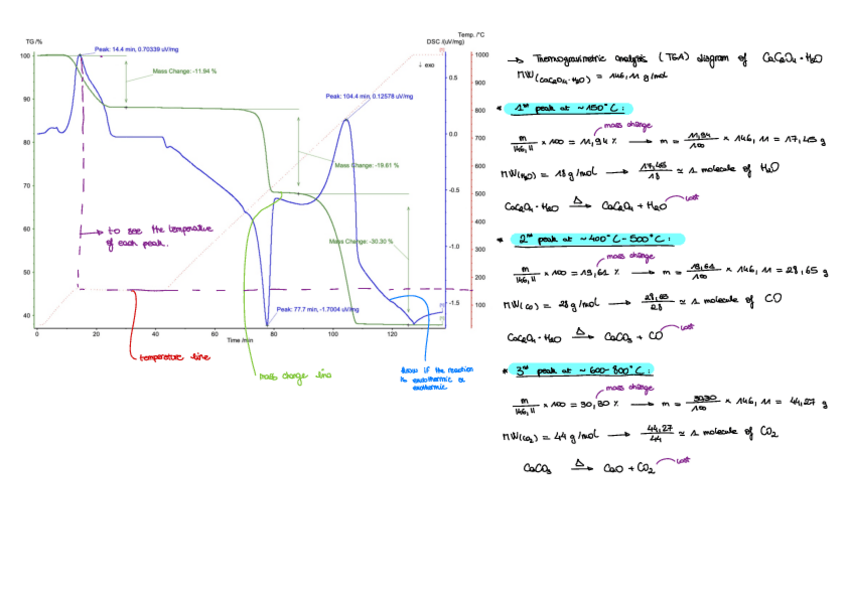 TG /%
Temp. /°C
DSC /(uV/mg)
Peak: 14.4 min, 0.70339 uV/mg
↓ exo
Mass Change: -11.94 %
Peak: 104.4 min, 0.12578 uV/mg
Mass Change: -19.61 %
Mass Change: -30.30 %
Peak: 77.7 min, -1.7004 uV/mg
100
90
80
70
60
50
40
0
20
40
60
80
100
120
Time /min
0.5
0.0
-0.5
-1.0
-1.5
1000
900
800
700
600
500
400
300
200
100
to see the temperature
of each peak.
temperature line
mass change line
know if the reaction
is endothermic or
exothermic
→ Thermogravimetric analysis (TGA) diagram of CaC₂O₄·H₂O
MW(CaC₂O₄·H₂O) = 146,11 g/mol
* 1st peak at ~150°C:
mass change
m/146,11 × 100 = 11,94 % → m = 11,94/100 × 146,11 = 17,45 g
MW(H₂O) = 18 g/mol → 17,45/18 ≃ 1 molecule of H₂O
CaC₂O₄·H₂O →Δ CaC₂O₄ + H₂O lost
* 2nd peak at ~400°C-500°C:
mass change
m/146,11 × 100 = 19,61 % → m = 19,61/100 × 146,11 = 28,65 g
MW(CO) = 28 g/mol → 28,65/28 ≃ 1 molecule of CO
CaC₂O₄·H₂O →Δ CaCO₃ + CO lost
* 3rd peak at ~600-800°C:
mass change
m/146,11 × 100 = 30,30 % → m = 30,30/100 × 146,11 = 44,27 g
MW(CO₂) = 44 g/mol → 44,27/44 ≃ 1 molecule of CO₂
CaCO₃ →Δ CaO + CO₂ lost